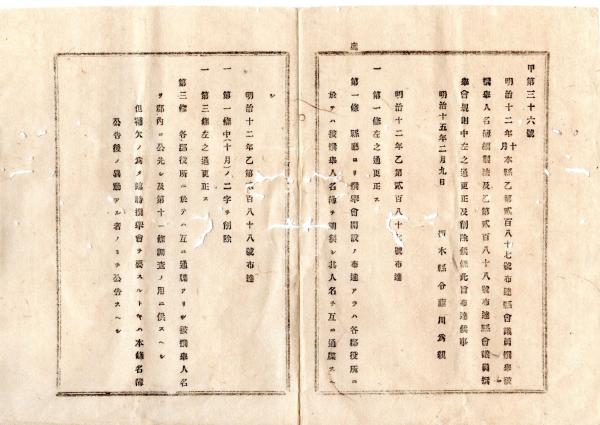 甲第三十六號
明治十二年十月本縣乙第貳百八十七號布達縣會議員撰擧被
撰擧人名簿調製法及乙第貳百八十八號布達縣會議員撰
擧會規則中左之通更正及削除候條此旨布達候事
明治十五年二月九日
栃木縣令藤川爲親
明治十二年乙第貳百八十七號布達
一 第一條左之通更正ス
第一條 縣廳ヨリ撰擧會開設ノ布達アラハ各郡役所ニ
於テハ被撰擧人名簿ヲ調製シ其人名ヲ互ニ通牒スヘ
シ
明治十二年乙第貳百八十八號布達
一 第一條中(十月)ノ二字ヲ削除
一 第三條左之通更正ス
第三條 各郡役所ニ於テハ互ニ通牒アリシ被撰擧人名
ヲ郡內ニ公告シ及第十一條調査ノ用ニ供スヘシ
但補欠ノ爲メ臨時撰擧會ヲ要スルトキハ本條名簿
公告後ノ異動アル者ノミヲ公告スヘシ